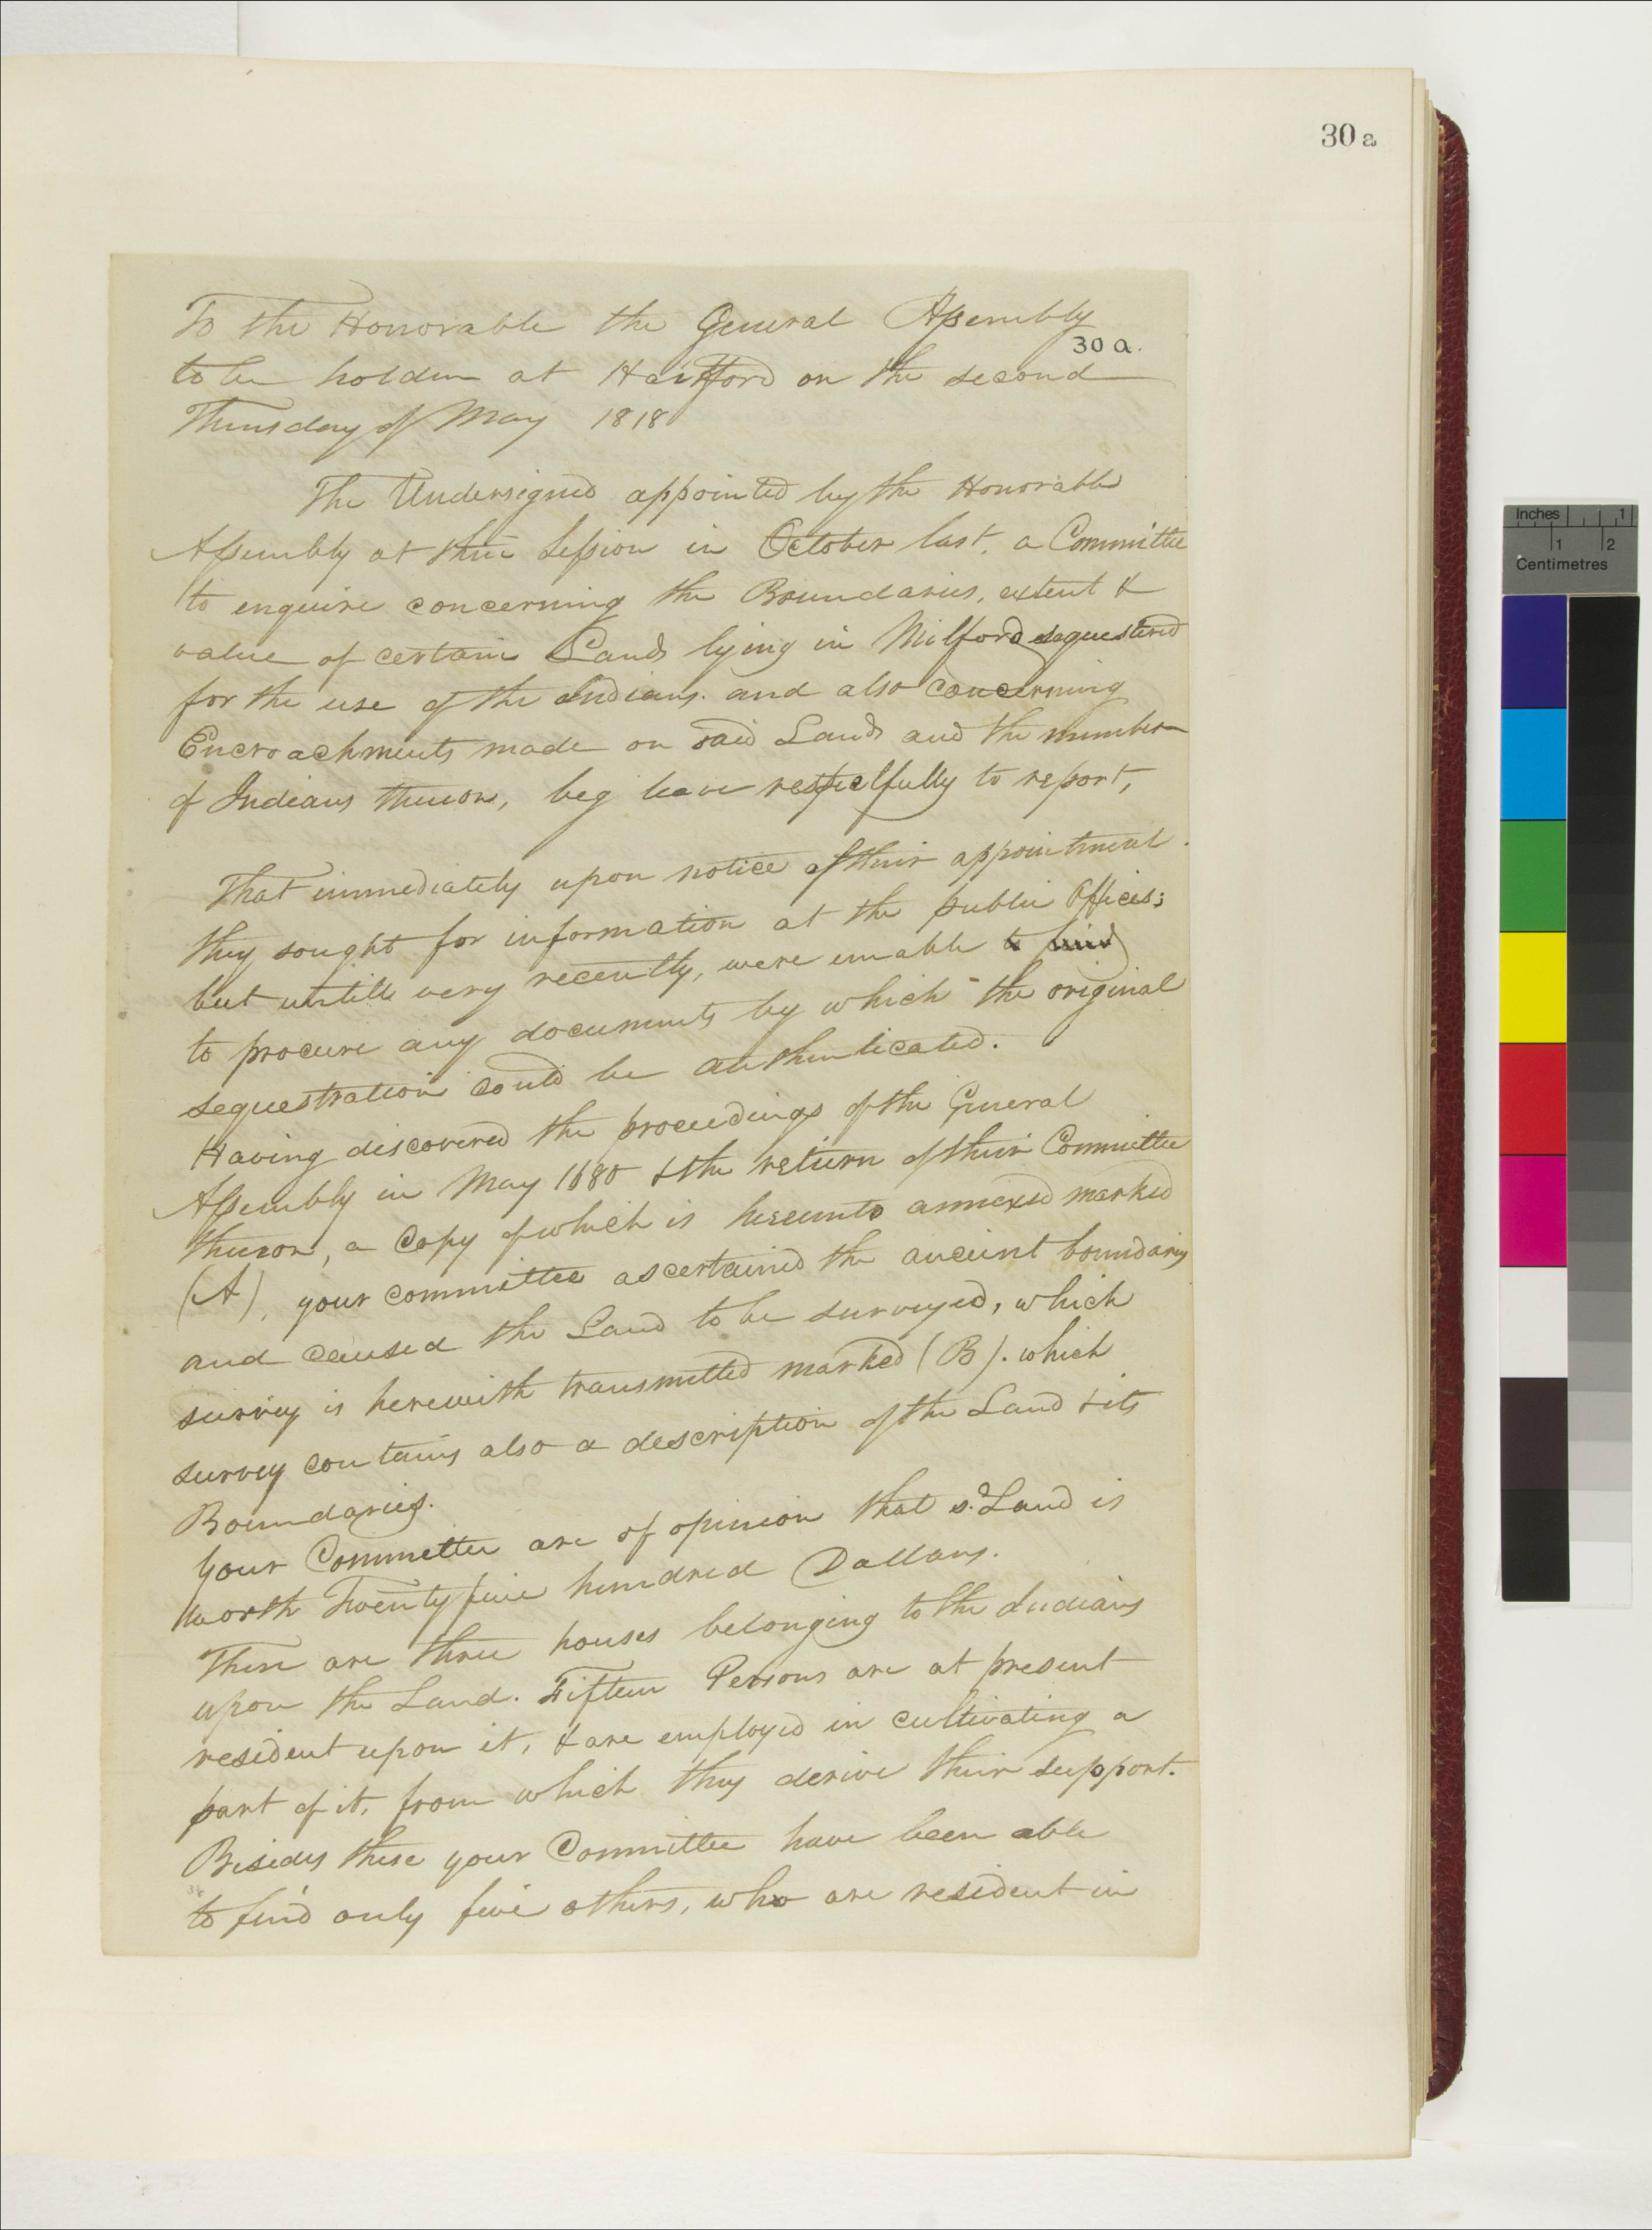 30 a
To the Honorable the General Assembly
30 a.
to be holden at Hartford on the second
Thursday of May 1818
The Undersigned appointed by the Honorable
Assembly at their Session in October last, a Committee
to enquire concerning the Boundaries, extent &
value of certain Lands lying in Milford sequestered
for the use of the Indians. and also concerning
Encroachments made on said Lands and the number
of Indians thereon, beg leave respectfully to report,
That immediately upon notice of their appointment
they sought for information at the public Offices;
but untill very recently, were unable to find
to procure any documents by which the original
sequestration could be authenticated.
Having discovered the proceedings of the General
Assembly in May 1680 & the return of their Committee
thereon, a Copy of which is hereunto annexed marked
(A), your committee ascertained the ancient boundaries
and caused the Land to be surveyed, which
survey is herewith transmitted marked (B). which
survey contains also a description of the Land & its
Boundaries.
Your Committee are of opinion that sd. Land is
worth Twenty five hundred Dollars.
There are three houses belonging to the Indians
upon the Land. Fifteen Persons are at present
resident upon it, & are employed in cultivating a
part of it, from which they derive their support.
Besides these your Committee have been able
to find only five others, who are resident in
Inches 1
1 2
Centimetres